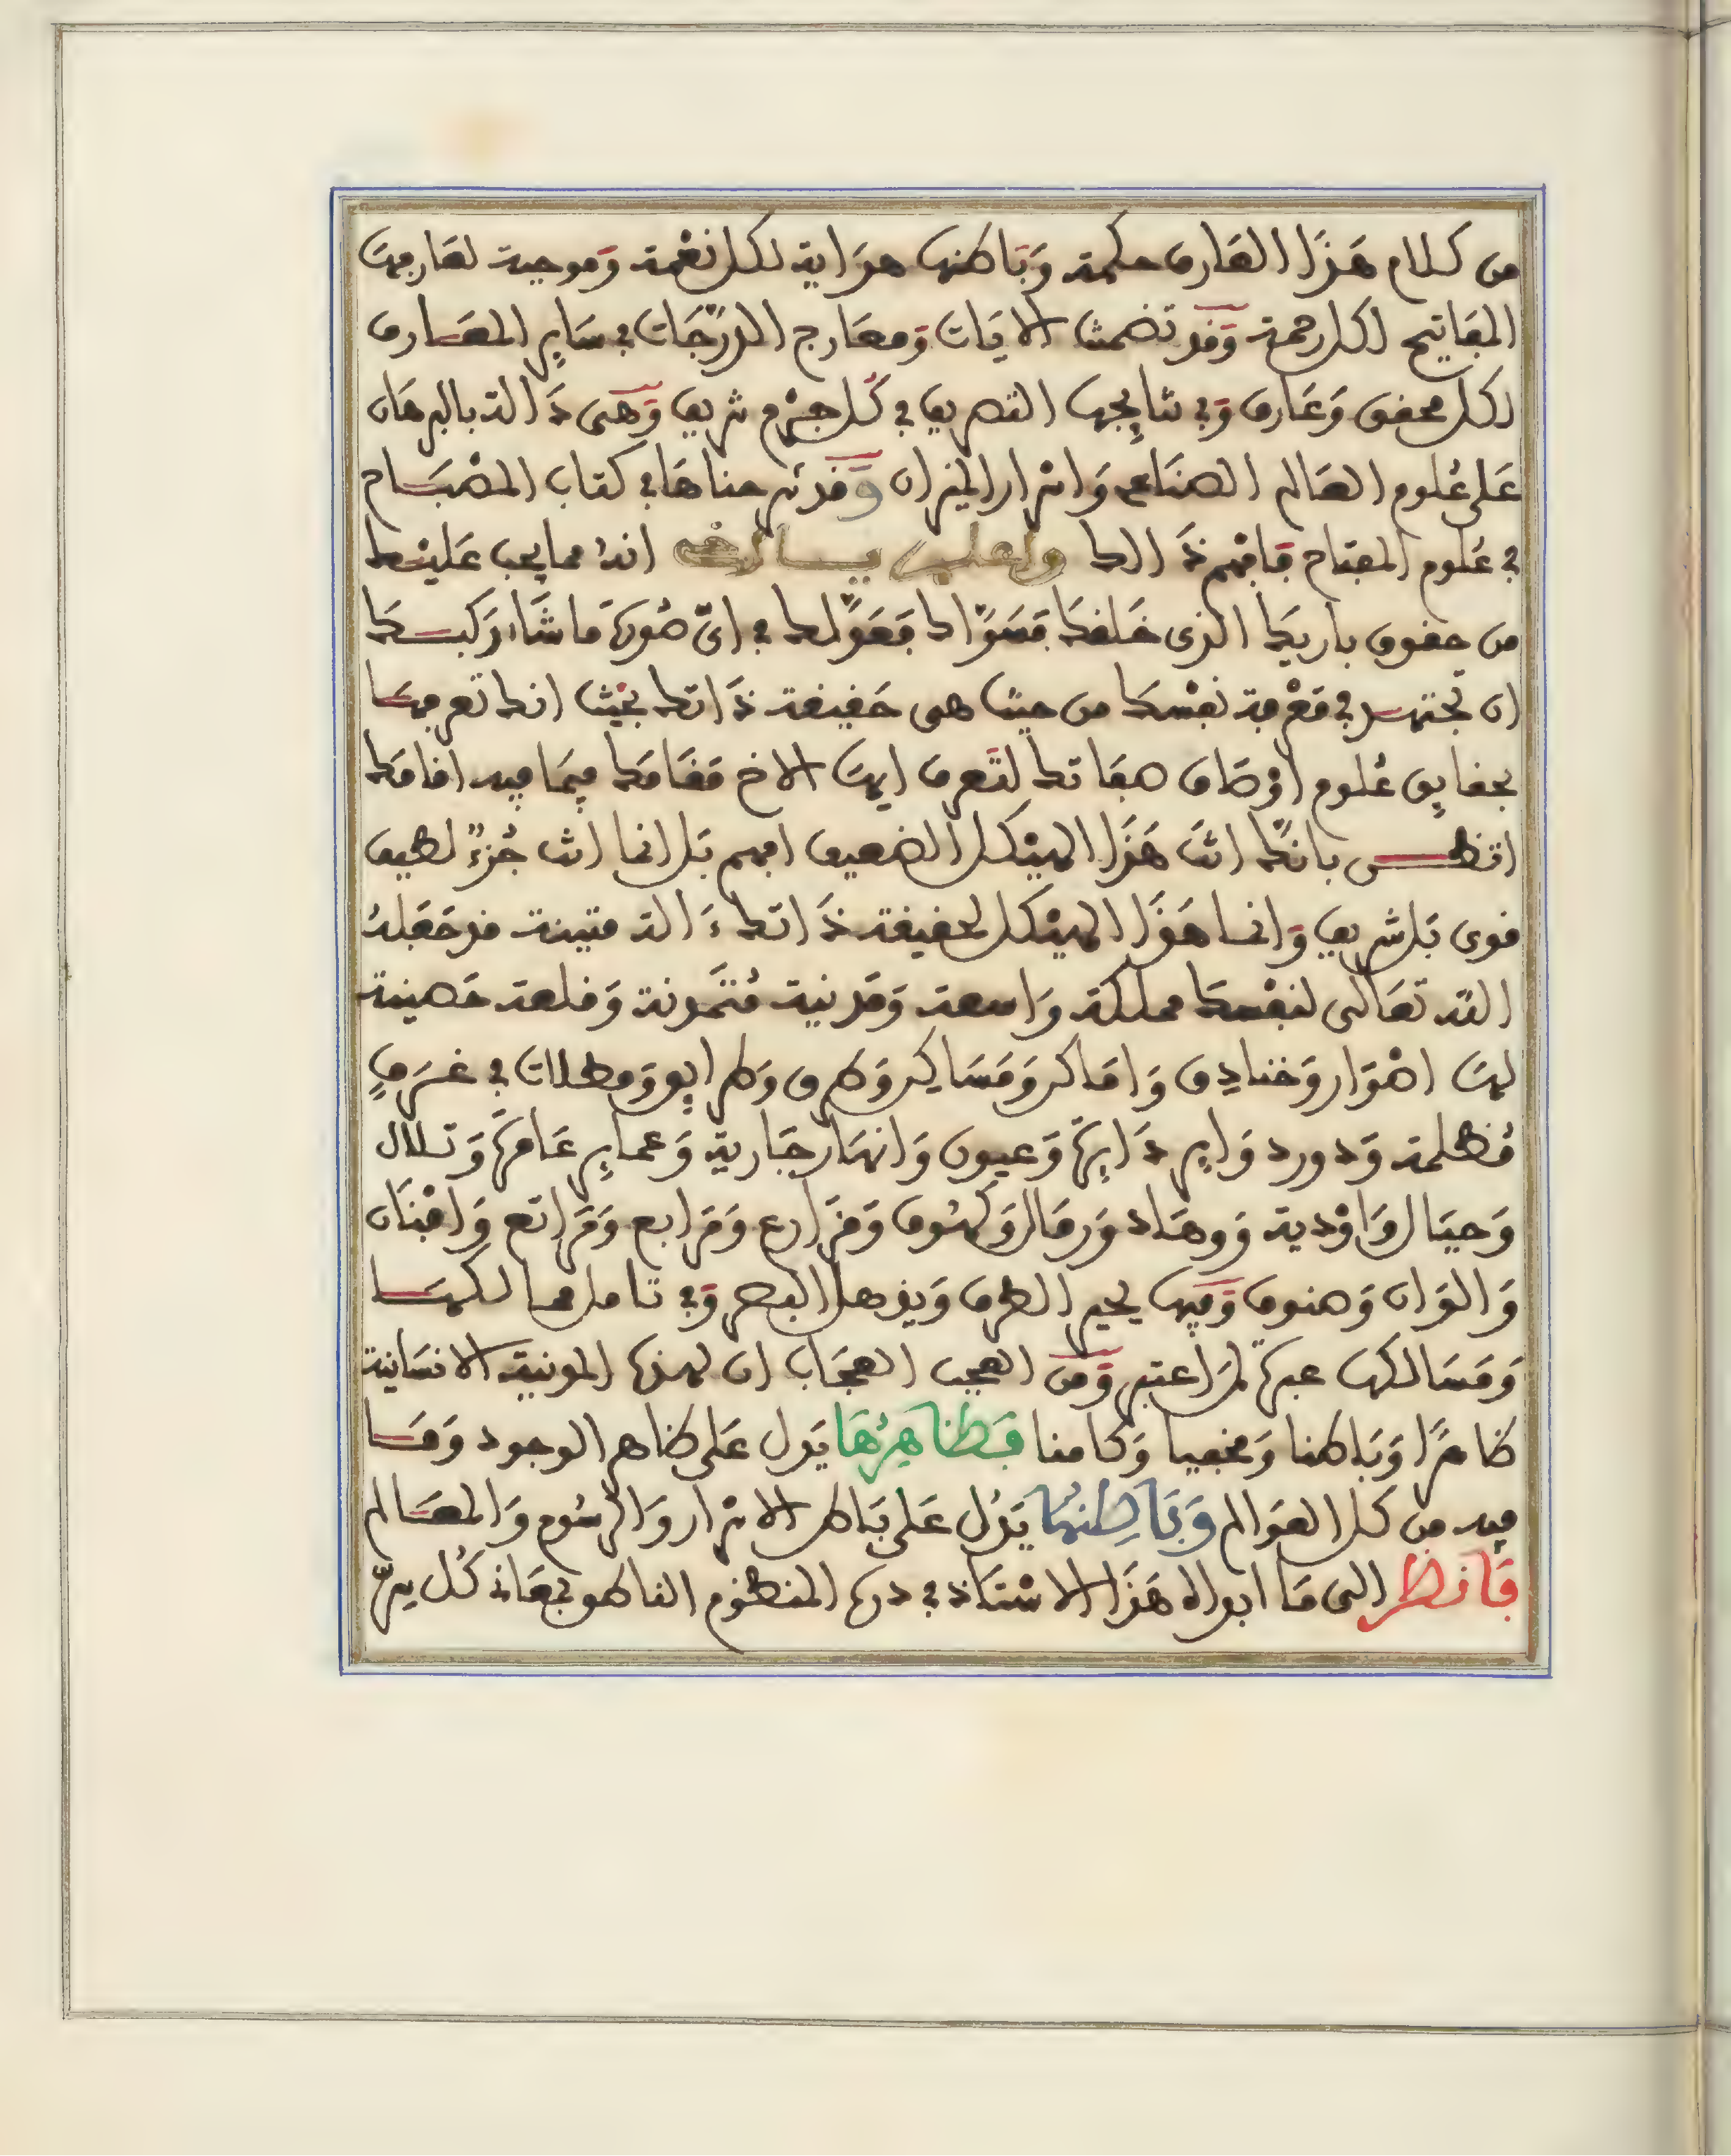 من كلام هَذَا العَارف حكمة وَبَاطنها هدَاية لكل نعْمة وَموجبة لعَارفها
المفَاتيح لكل رحمة وَقد تضمنت الايَات وَمعَارج الدرَجَات في سَاير المعَارف
لكل محقق وَعَارف وَفي نتايجها التصريف في كُل جزْء شريف وَهىَ دَالة بالبرهَان
عَلى عُلوم العَالم الصنَاعى وَاسْرار الميزان وَقد شرحناهَا في كتاب المصْبَاح
في عُلوم المفتاح فَافهم ذَالك واعلم يا اخى انهُ مما يجب عَليْك
من حقوق باريكَ الذى خَلقكَ فَسَوَّاك فَعَدَّلك في اىّ صُورة مَا شَاء رَكبك
ان تجتهد في مَعْرفة نفْسكَ من حيثُ هى حَقيقة ذَاتك بحيْث انك تعرفهَا
بحقايق عُلوم اوْصَاف صفَاتك لتَعرف ايهَا الاخ مَقَامَك فيمَا فيه اقامَك
اتظـــن بانكَّ انتَ هَذَا الهيْكل الضعيف افهم بَل انما انت جُزءٌ لطيف
قوى بَل شريف وَانما هَذَا الهيْكل لحقيقة ذَاتك ءَالة متينة قد جَعَلهُ
اللّه تعَالى لنفْسكَ مملكة وَاسعة وَمَدنية مُتَمدنة وَقلعة حَصينة
لهَا اصْوَار وَخنَادِق وَامَاكن وَمَسَاكن وَطرق وَطرايق وَمظلات في غرَفٍ
مُظلمة وَدور دوَاير دَايرَة وَعيون وَانهَار جَارية وَعماير عَامرَة وَتلال
وَجبَال وَاوْدية وَوهَاد وَرمَال وَكهُوف وَمَزارع وَمَرابع وَمَرَاتع وَافنَان
وَالوَان وَصنوف وَفيها يحير الطرف وَيذهل البصر وَفي تامل ممالكهَا
وَمَسَالكها عبرَة لمن اعتبر وَمن العجب العجَاب ان لهذه المدنية الانسَانية
ظاهرًا وَبَاطنا وَمخفيا وَكامنا فَظَاهِرُهَا يَدل عَلى ظاهر الوجود وَمَا
فيه من كل العوَالم وَبَاطِنهَا يَدُل عَلى بَاطن الاسْرار وَالرسُوم وَالمعَالم
فَانظر الى مَا ابداه هَذَا الاسْتَاذ في دره المنظوم الناطق بمعَانى كُل سرّ